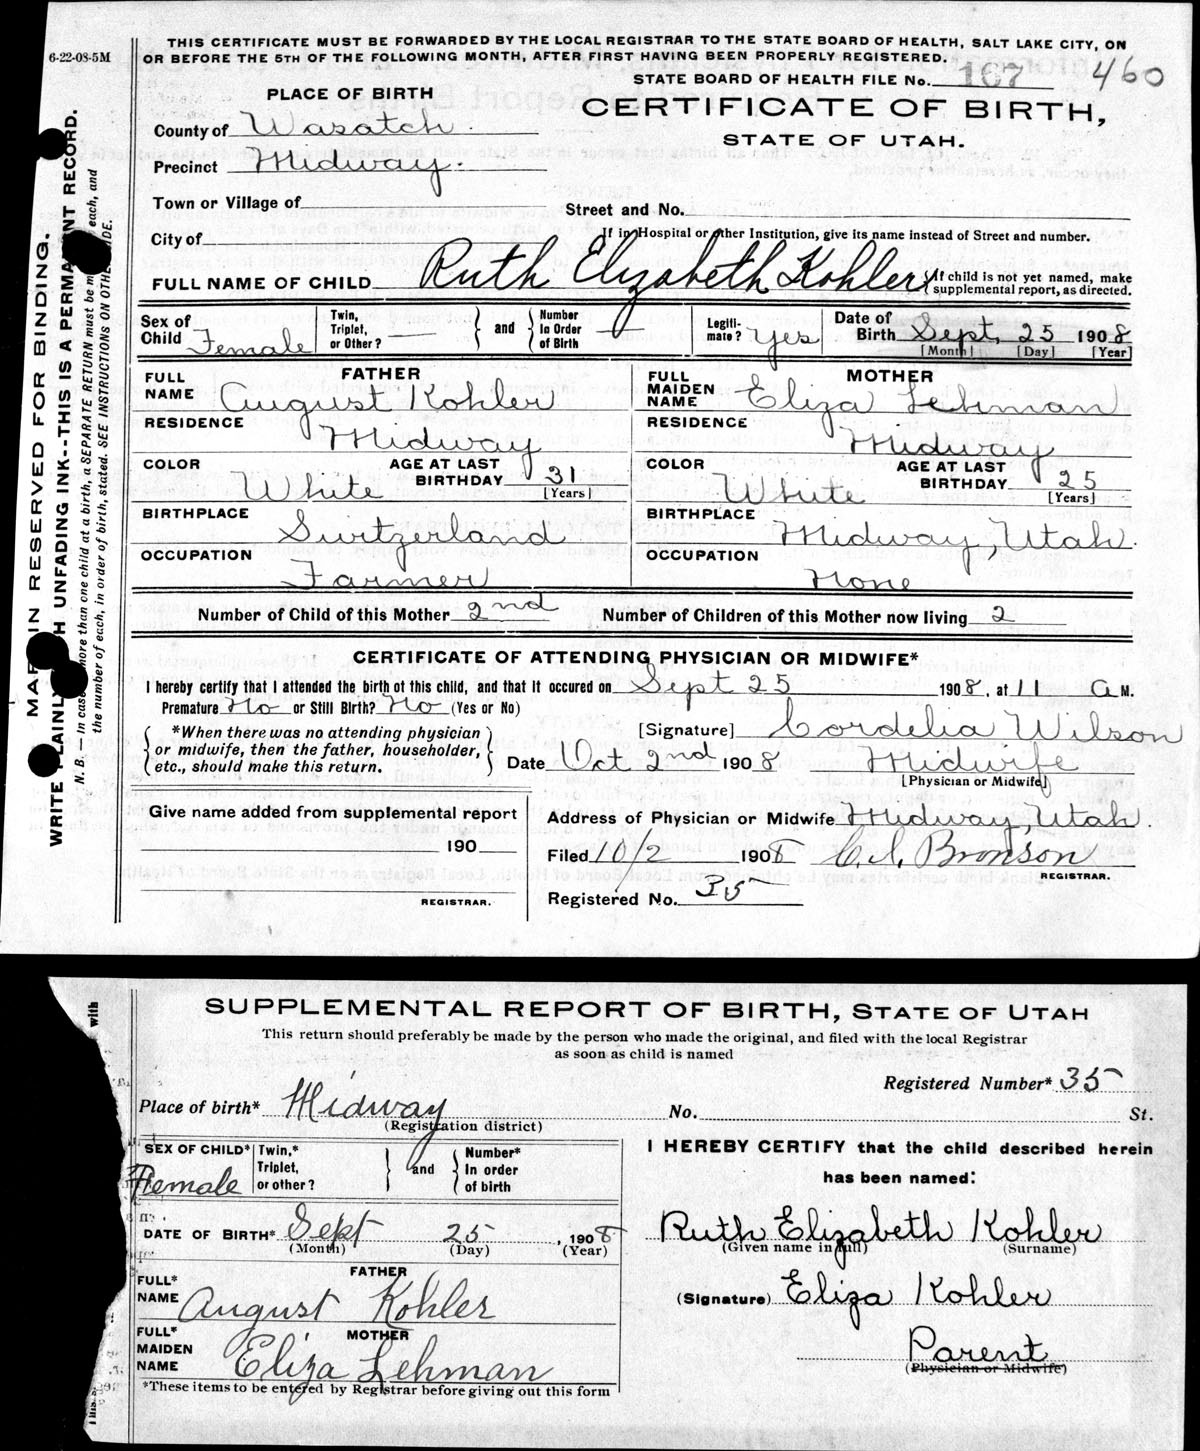 6-22-08-5M
THIS CERTIFICATE MUST BE FORWARDED BY THE LOCAL REGISTRAR TO THE STATE BOARD OF HEALTH, SALT LAKE CITY, ON
OR BEFORE THE 5TH OF THE FOLLOWING MONTH, AFTER FIRST HAVING BEEN PROPERLY REGISTERED.
STATE BOARD OF HEALTH FILE No. 167 460
PLACE OF BIRTH
CERTIFICATE OF BIRTH,
STATE OF UTAH.
County of Wasatch.
Precinct Midway.
Town or Village of
Street and No.
City of
If in Hospital or other Institution, give its name instead of Street and number.
FULL NAME OF CHILD Ruth Elizabeth Kohler { If child is not yet named, make
supplemental report, as directed.
Sex of Child Female
Twin, Triplet, or Other? — } and { Number In Order of Birth —
Legiti-mate? Yes
Date of Birth Sept. 25 1908
[Month] [Day] [Year]
FATHER
FULL NAME August Kohler
RESIDENCE Midway
COLOR White AGE AT LAST BIRTHDAY 31
[Years]
BIRTHPLACE Switzerland
OCCUPATION Farmer
MOTHER
FULL MAIDEN NAME Eliza Lehman
RESIDENCE Midway
COLOR White AGE AT LAST BIRTHDAY 25
[Years]
BIRTHPLACE Midway, Utah.
OCCUPATION None
Number of Child of this Mother 2nd Number of Children of this Mother now living 2
CERTIFICATE OF ATTENDING PHYSICIAN OR MIDWIFE*
I hereby certify that I attended the birth of this child, and that it occured on Sept 25 1908, at 11 A M.
Premature No or Still Birth? No (Yes or No)
*When there was no attending physician
or midwife, then the father, householder,
etc., should make this return.
[Signature] Cordelia Wilson
Date Oct 2nd 1908 Midwife
[Physician or Midwife]
Give name added from supplemental report
190
REGISTRAR.
Address of Physician or Midwife Midway, Utah.
Filed 10/2 1908 C.I. Bronson
REGISTRAR.
Registered No. 35
MARGIN RESERVED FOR BINDING.
WRITE PLAINLY WITH UNFADING INK--THIS IS A PERMANENT RECORD.
N. B. — In case more than one child at a birth, a SEPARATE RETURN must be made each, and
the number of each, in order of birth, stated. SEE INSTRUCTIONS ON OTHER SIDE.
with
SUPPLEMENTAL REPORT OF BIRTH, STATE OF UTAH
This return should preferably be made by the person who made the original, and filed with the local Registrar
as soon as child is named
Registered Number* 35
Place of birth* Midway No. St.
(Registration district)
SEX OF CHILD* Female
Twin,* Triplet, or other? } and { Number* In order of birth
DATE OF BIRTH* Sept 25, 1908
(Month) (Day) (Year)
FATHER
FULL* NAME August Kohler
MOTHER
FULL* MAIDEN NAME Eliza Lehman
*These items to be entered by Registrar before giving out this form
I HEREBY CERTIFY that the child described herein
has been named:
Ruth Elizabeth Kohler
(Given name in full) (Surname)
(Signature) Eliza Kohler
Parent
(Physician or Midwife)